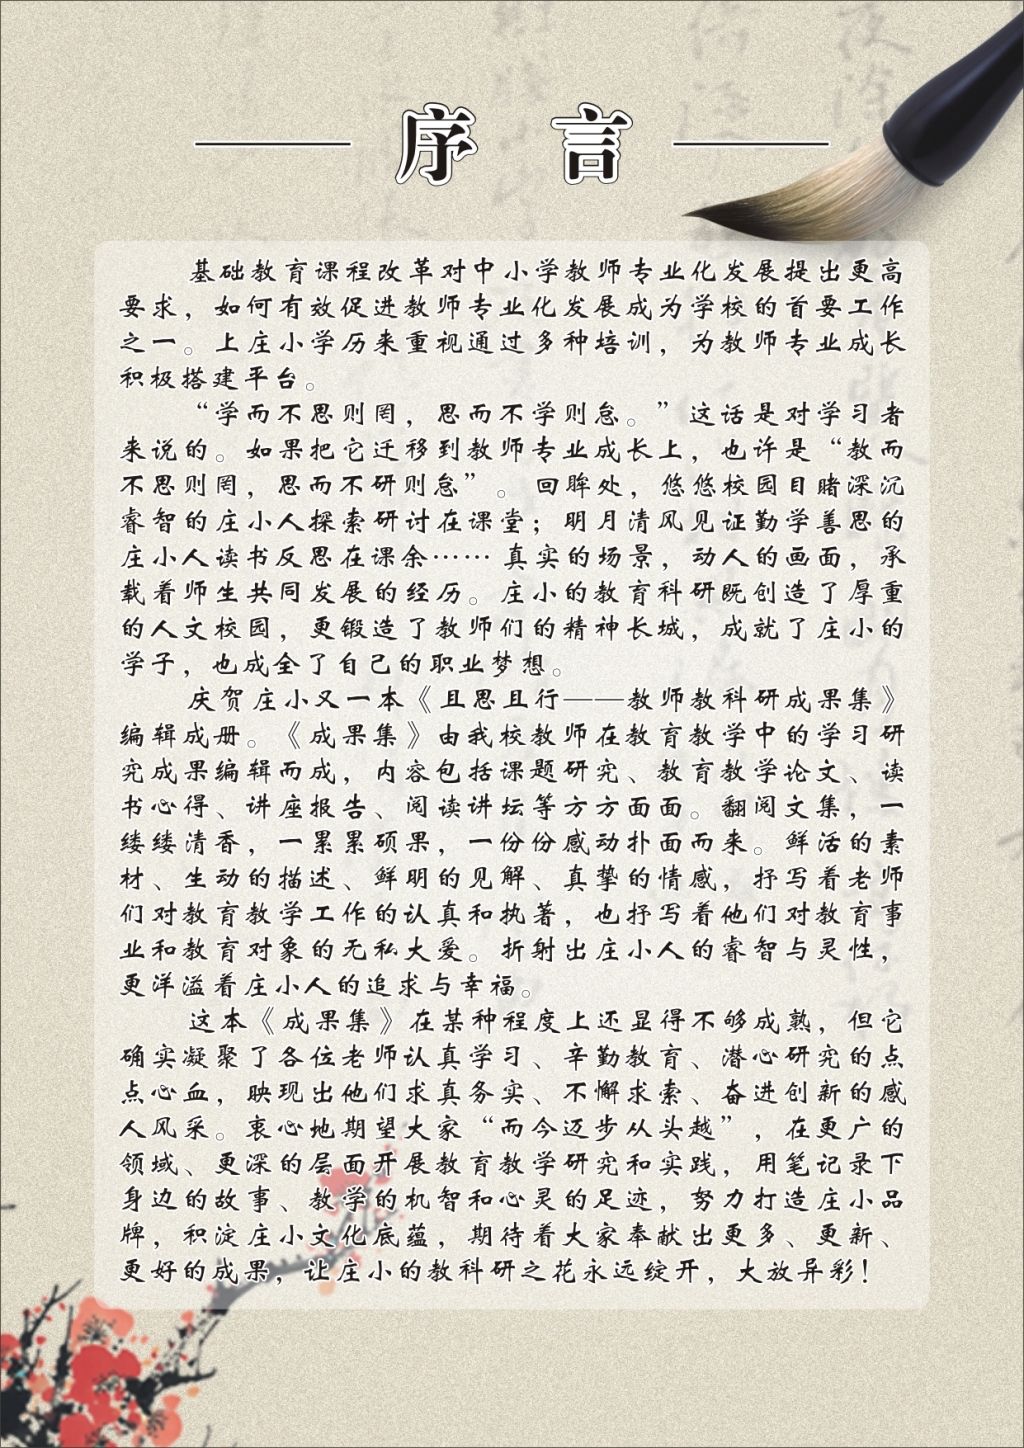 序言
基础教育课程改革对中小学教师专业化发展提出更高
要求，如何有效促进教师专业化发展成为学校的首要工作
之一。上庄小学历来重视通过多种培训，为教师专业成长
积极搭建平台。
“学而不思则罔，思而不学则怠。”这话是对学习者
来说的。如果把它迁移到教师专业成长上，也许是“教而
不思则罔，思而不研则怠”。回眸处，悠悠校园目睹深沉
睿智的庄小人探索研讨在课堂；明月清风见证勤学善思的
庄小人读书反思在课余……真实的场景，动人的画面，承
载着师生共同发展的经历。庄小的教育科研既创造了厚重
的人文校园，更锻造了教师们的精神长城，成就了庄小的
学子，也成全了自己的职业梦想。
庆贺庄小又一本《且思且行——教师教科研成果集》
编辑成册。《成果集》由我校教师在教育教学中的学习研
究成果编辑而成，内容包括课题研究、教育教学论文、读
书心得、讲座报告、阅读讲坛等方方面面。翻阅文集，一
缕缕清香，一累累硕果，一份份感动扑面而来。鲜活的素
材、生动的描述、鲜明的见解、真挚的情感，抒写着老师
们对教育教学工作的认真和执著，也抒写着他们对教育事
业和教育对象的无私大爱。折射出庄小人的睿智与灵性，
更洋溢着庄小人的追求与幸福。
这本《成果集》在某种程度上还显得不够成熟，但它
确实凝聚了各位老师认真学习、辛勤教育、潜心研究的点
点心血，映现出他们求真务实、不懈求索、奋进创新的感
人风采。衷心地期望大家“而今迈步从头越”，在更广的
领域、更深的层面开展教育教学研究和实践，用笔记录下
身边的故事、教学的机智和心灵的足迹，努力打造庄小品
牌，积淀庄小文化底蕴，期待着大家奉献出更多、更新、
更好的成果，让庄小的教科研之花永远绽开，大放异彩！